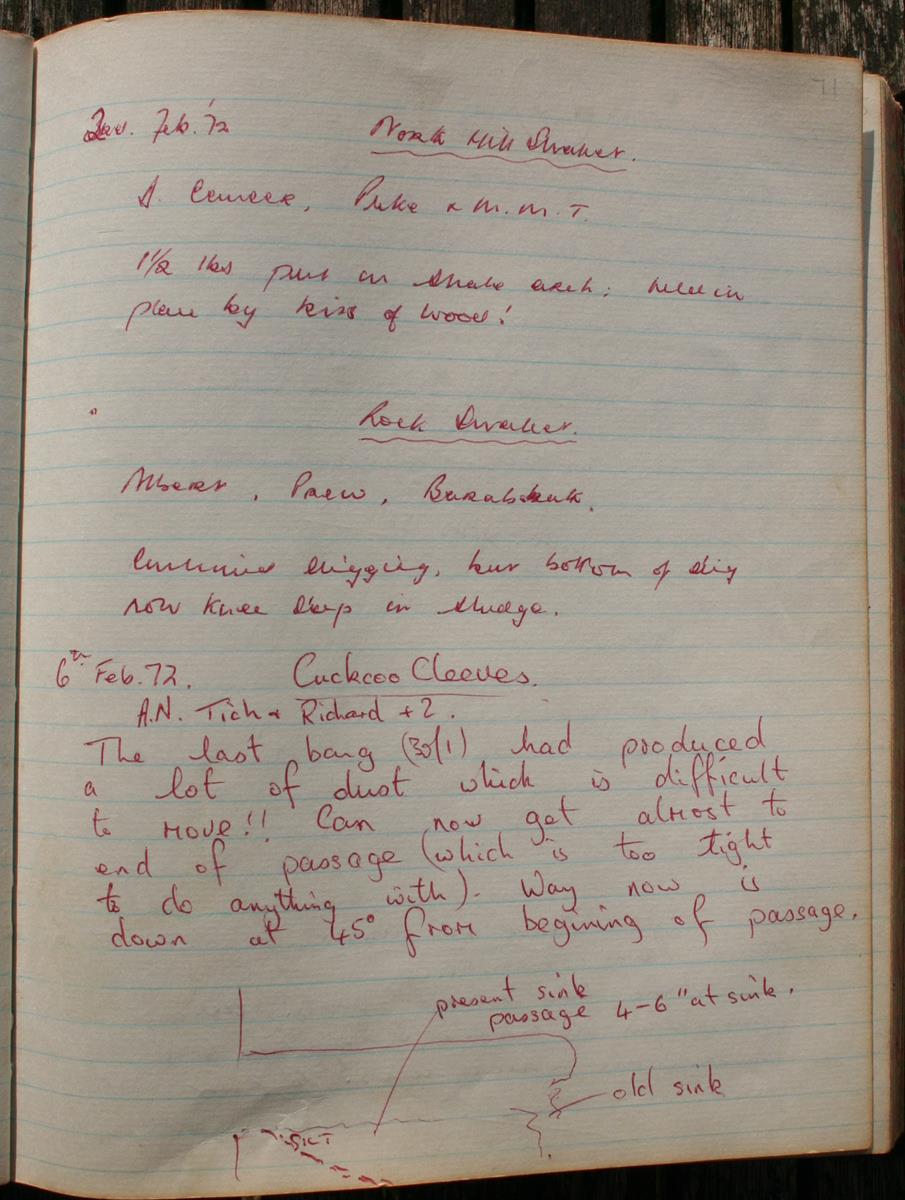 71
Feb. '72 North Hill Swallet.
A. , Pete & M.M.T.
1½ lbs put in shale arch; held in
place by kiss of wood!
Rock Swallet.
Albert, Prew, .
Continued digging, but bottom of dig
now knee deep in sludge.
6th Feb. 72. Cuckoo Cleeves.
A.N. Tich & Richard + 2.
The last bang (30/1) had produced
a lot of dust which is difficult
to move!! Can now get almost to
end of passage (which is too tight
to do anything with). Way now is
down at 45° from begining of passage.
present sink
passage 4-6" at sink.
old sink
SILT